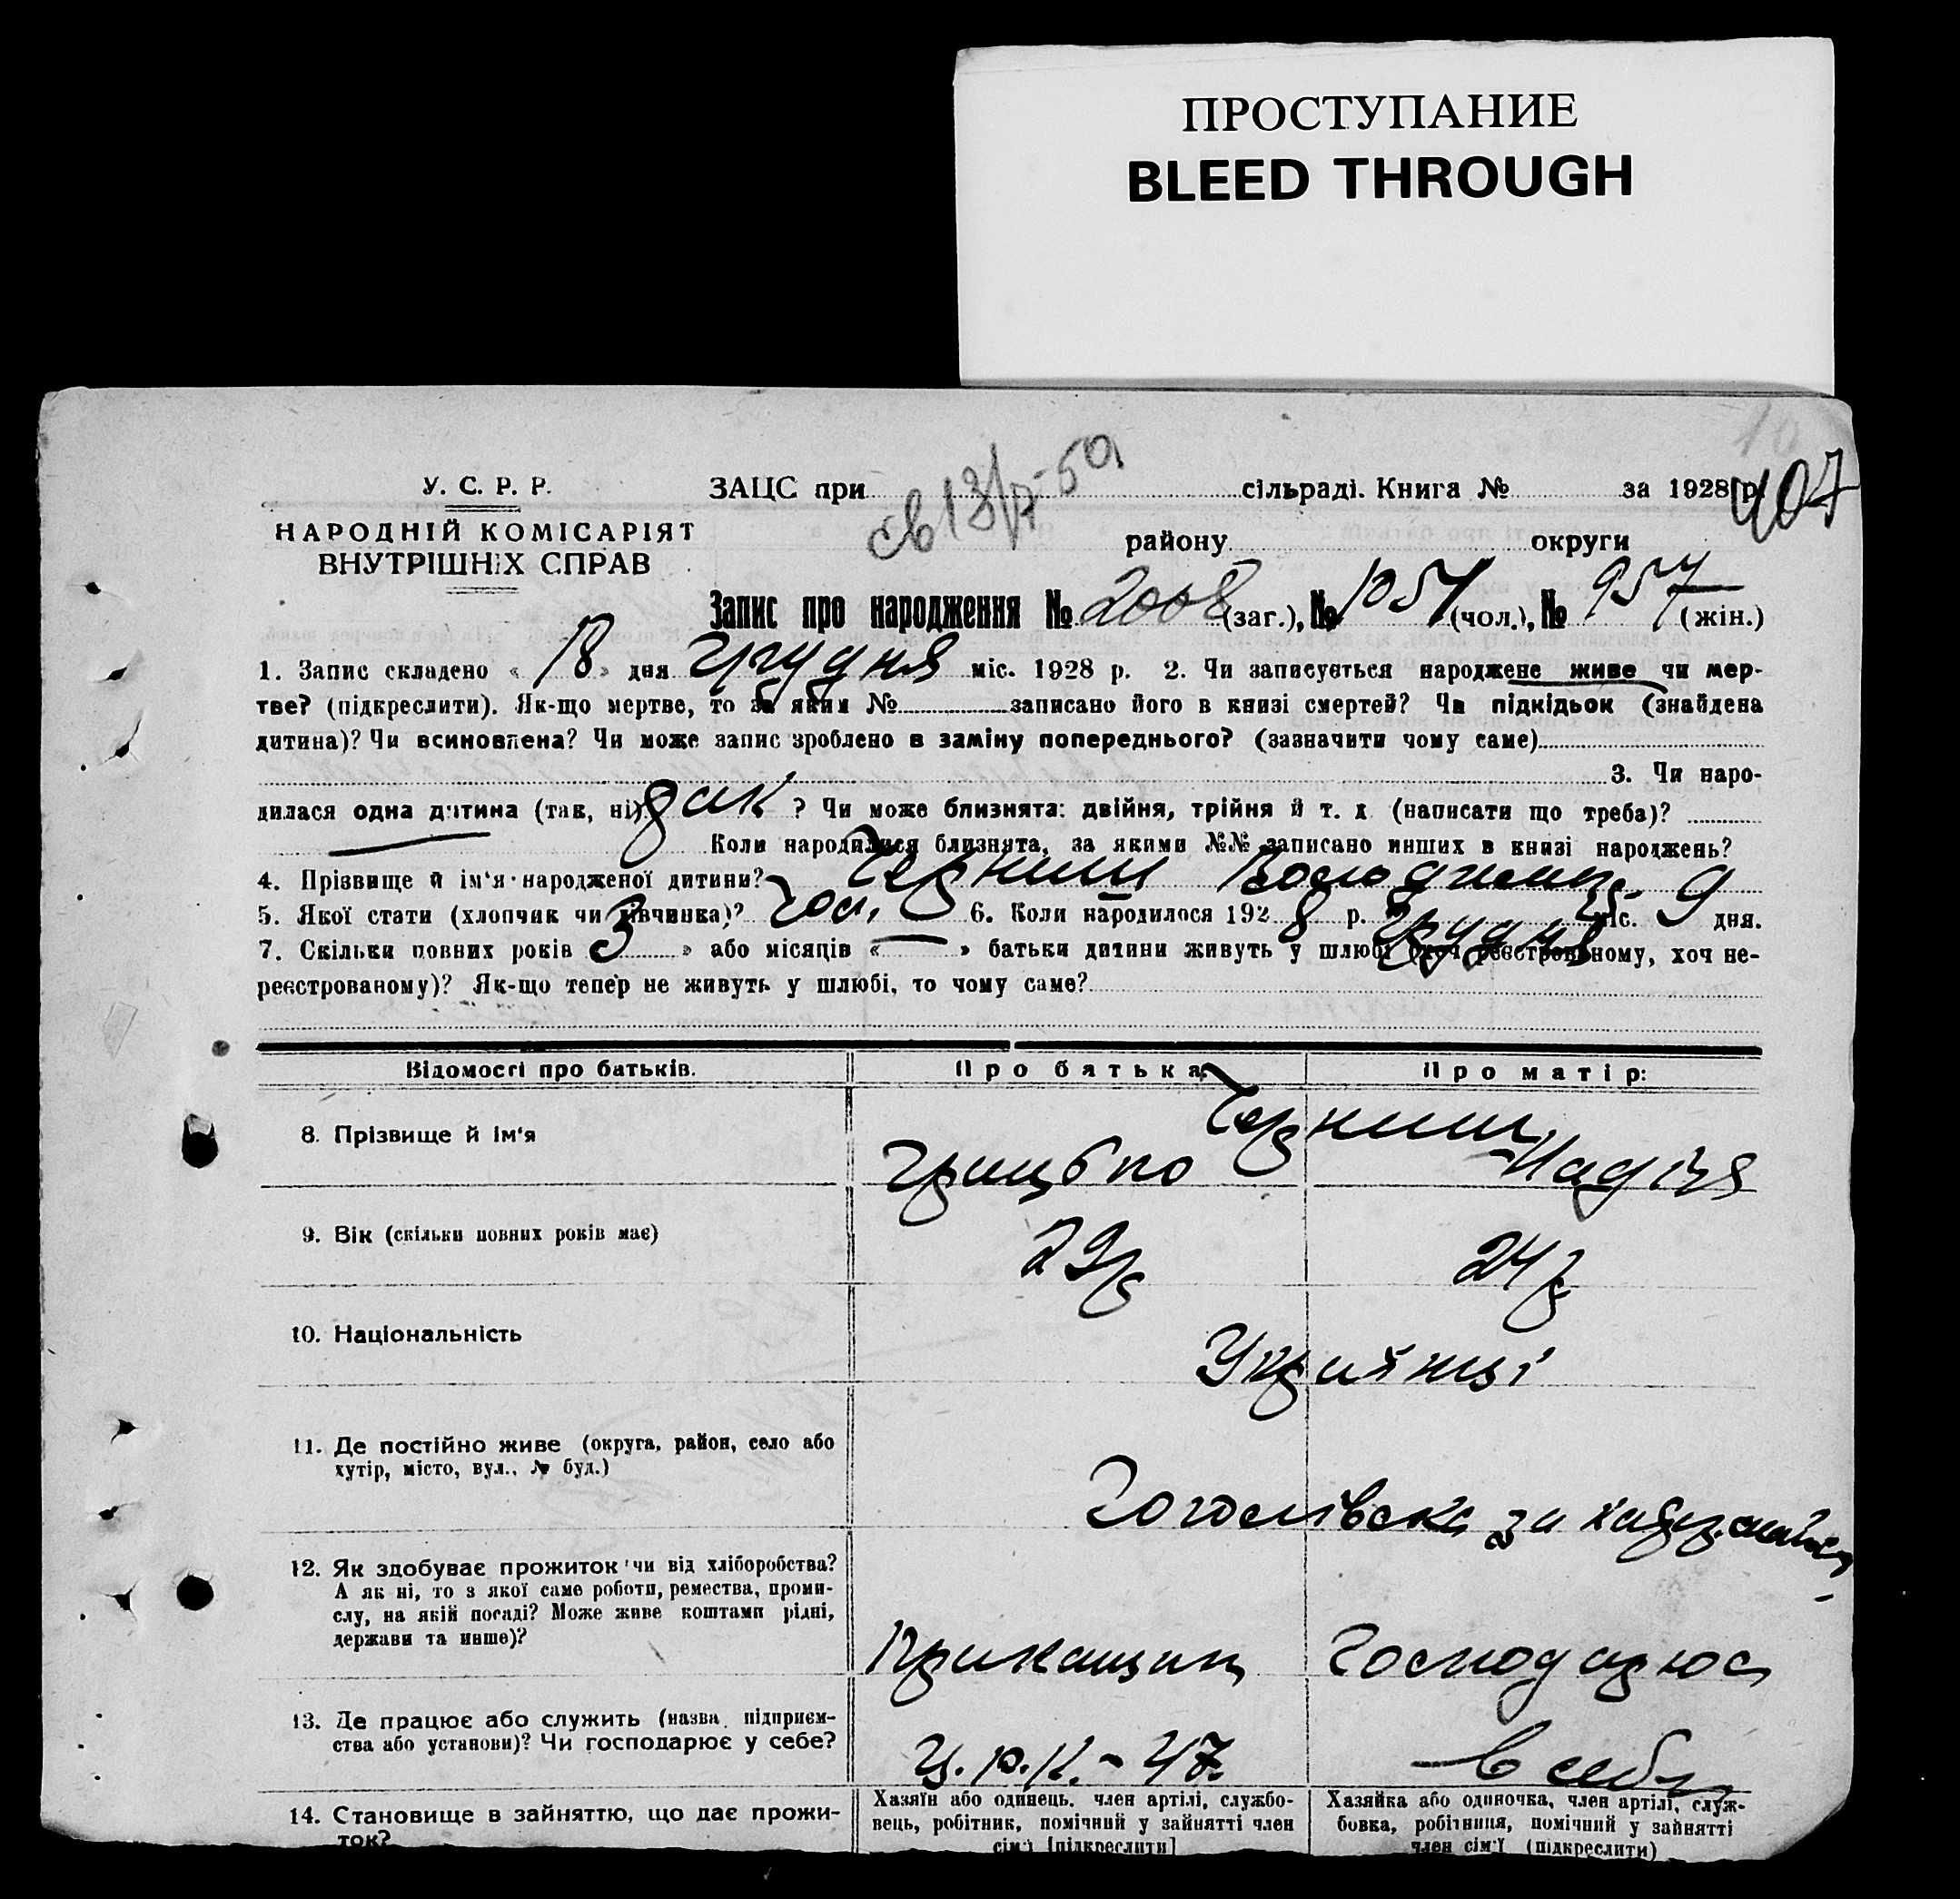 ПРОСТУПАНИЕ
BLEED THROUGH
10
У. С. Р. Р.
НАРОДНІЙ КОМІСАРІЯТ
ВНУТРІШНІХ СПРАВ
ЗАЦС при сільраді. Книга № за 1928 р. 407
св 13/7-50
району округи
Запис про народження № 2008 (заг.), № 1051 (чол.), № 957 (жін.)
1. Запис складено « 18 » дня грудня міс. 1928 р. 2. Чи записується народжене живе чи мер-
тве? (підкреслити). Як-що мертве, то за яким № записано його в книзі смертей? Чи підкідьок (знайдена
дитина)? Чи всиновлена? Чи може запис зроблено в заміну попереднього? (зазначити чому саме)
3. Чи наро-
дилася одна дитина (так, ні) так ? Чи може близнята: двійня, трійня й т. д. (написати що треба)?
Коли народилися близнята, за якими №№ записано инших в книзі народжень?
4. Прізвище й ім'я народженої дитини? Черниш Володимир
5. Якої статі (хлопчик чи дівчинка)? чол. 6. Коли народилося 1928 р. грудня міс. 9 дня.
7. Скільки повних років « 3 » або місяців « — » батьки дитини живуть у шлюбі (хоч реєстрованому, хоч не-
реєстрованому)? Як-що тепер не живуть у шлюбі, то чому саме?
Відомості про батьків. Про батька: Про матір:
8. Прізвище й ім'я Черниш
Грицько Надія
9. Вік (скільки повних років має) 29 р 24 р
10. Національність Українці
11. Де постійно живе (округа, район, село або
хутір, місто, вул., № буд.)
Гоголівська
12. Як здобуває прожиток (чи від хліборобства?
А як ні, то з якої саме роботи, ремества, проми-
слу, на якій посаді? Може живе коштами рідні,
держави та инше)?
Прикащик Господарює
13. Де працює або служить (назва підприєм-
ства або установи)? Чи господарює у себе?
Ц.р.к. - 47 в себе
14. Становище в зайняттю, що дає прожи-
ток?
Хазяїн або одинець, член артілі, службо-
вець, робітник, помічний у зайнятті член
сім'ї [підкреслити]
Хазяйка або одиночка, член артілі, служ-
бовка, робітниця, помічний у зайнятті
член сім'ї (підкреслити)